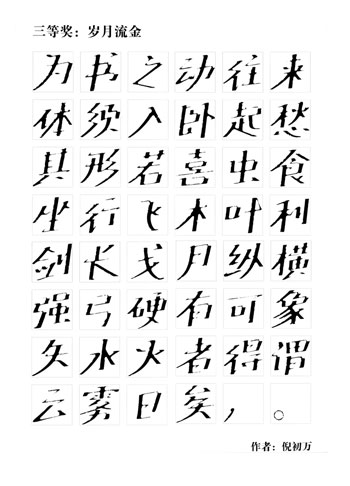 三等奖：岁月流金
为书之动往来
体须入卧起愁
其形若喜虫食
坐行飞木叶利
剑长戈月纵横
强弓硬有可象
久水火者得谓
云雾日矣，。
作者：倪初万